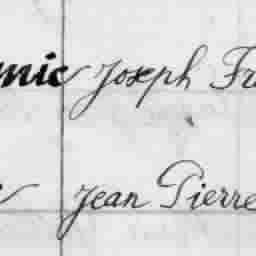 mic Joseph Fr
Jean Pierre